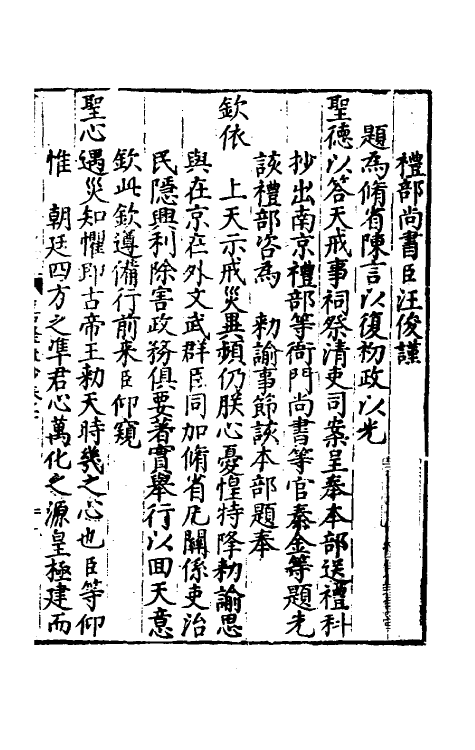 禮部尚書臣汪俊謹
題為脩省陳言以復初政以光
聖德以答天戒事祠祭清吏司案呈奉本部送禮科
抄出南京禮部等衙門尚書等官秦金等題光
該禮部咨為 勑諭事節該本部題奉
欽依 上天示戒災異頻仍朕心憂惶特降勑諭思
與在京在外文武群臣同加脩省凡關係吏治
民隱興利除害政務俱要著實舉行以回天意
欽此欽遵備行前来臣仰窺
聖心遇災知懼即古帝王勑天時幾之心也臣等仰
惟 朝廷四方之準君心萬化之源皇極建而